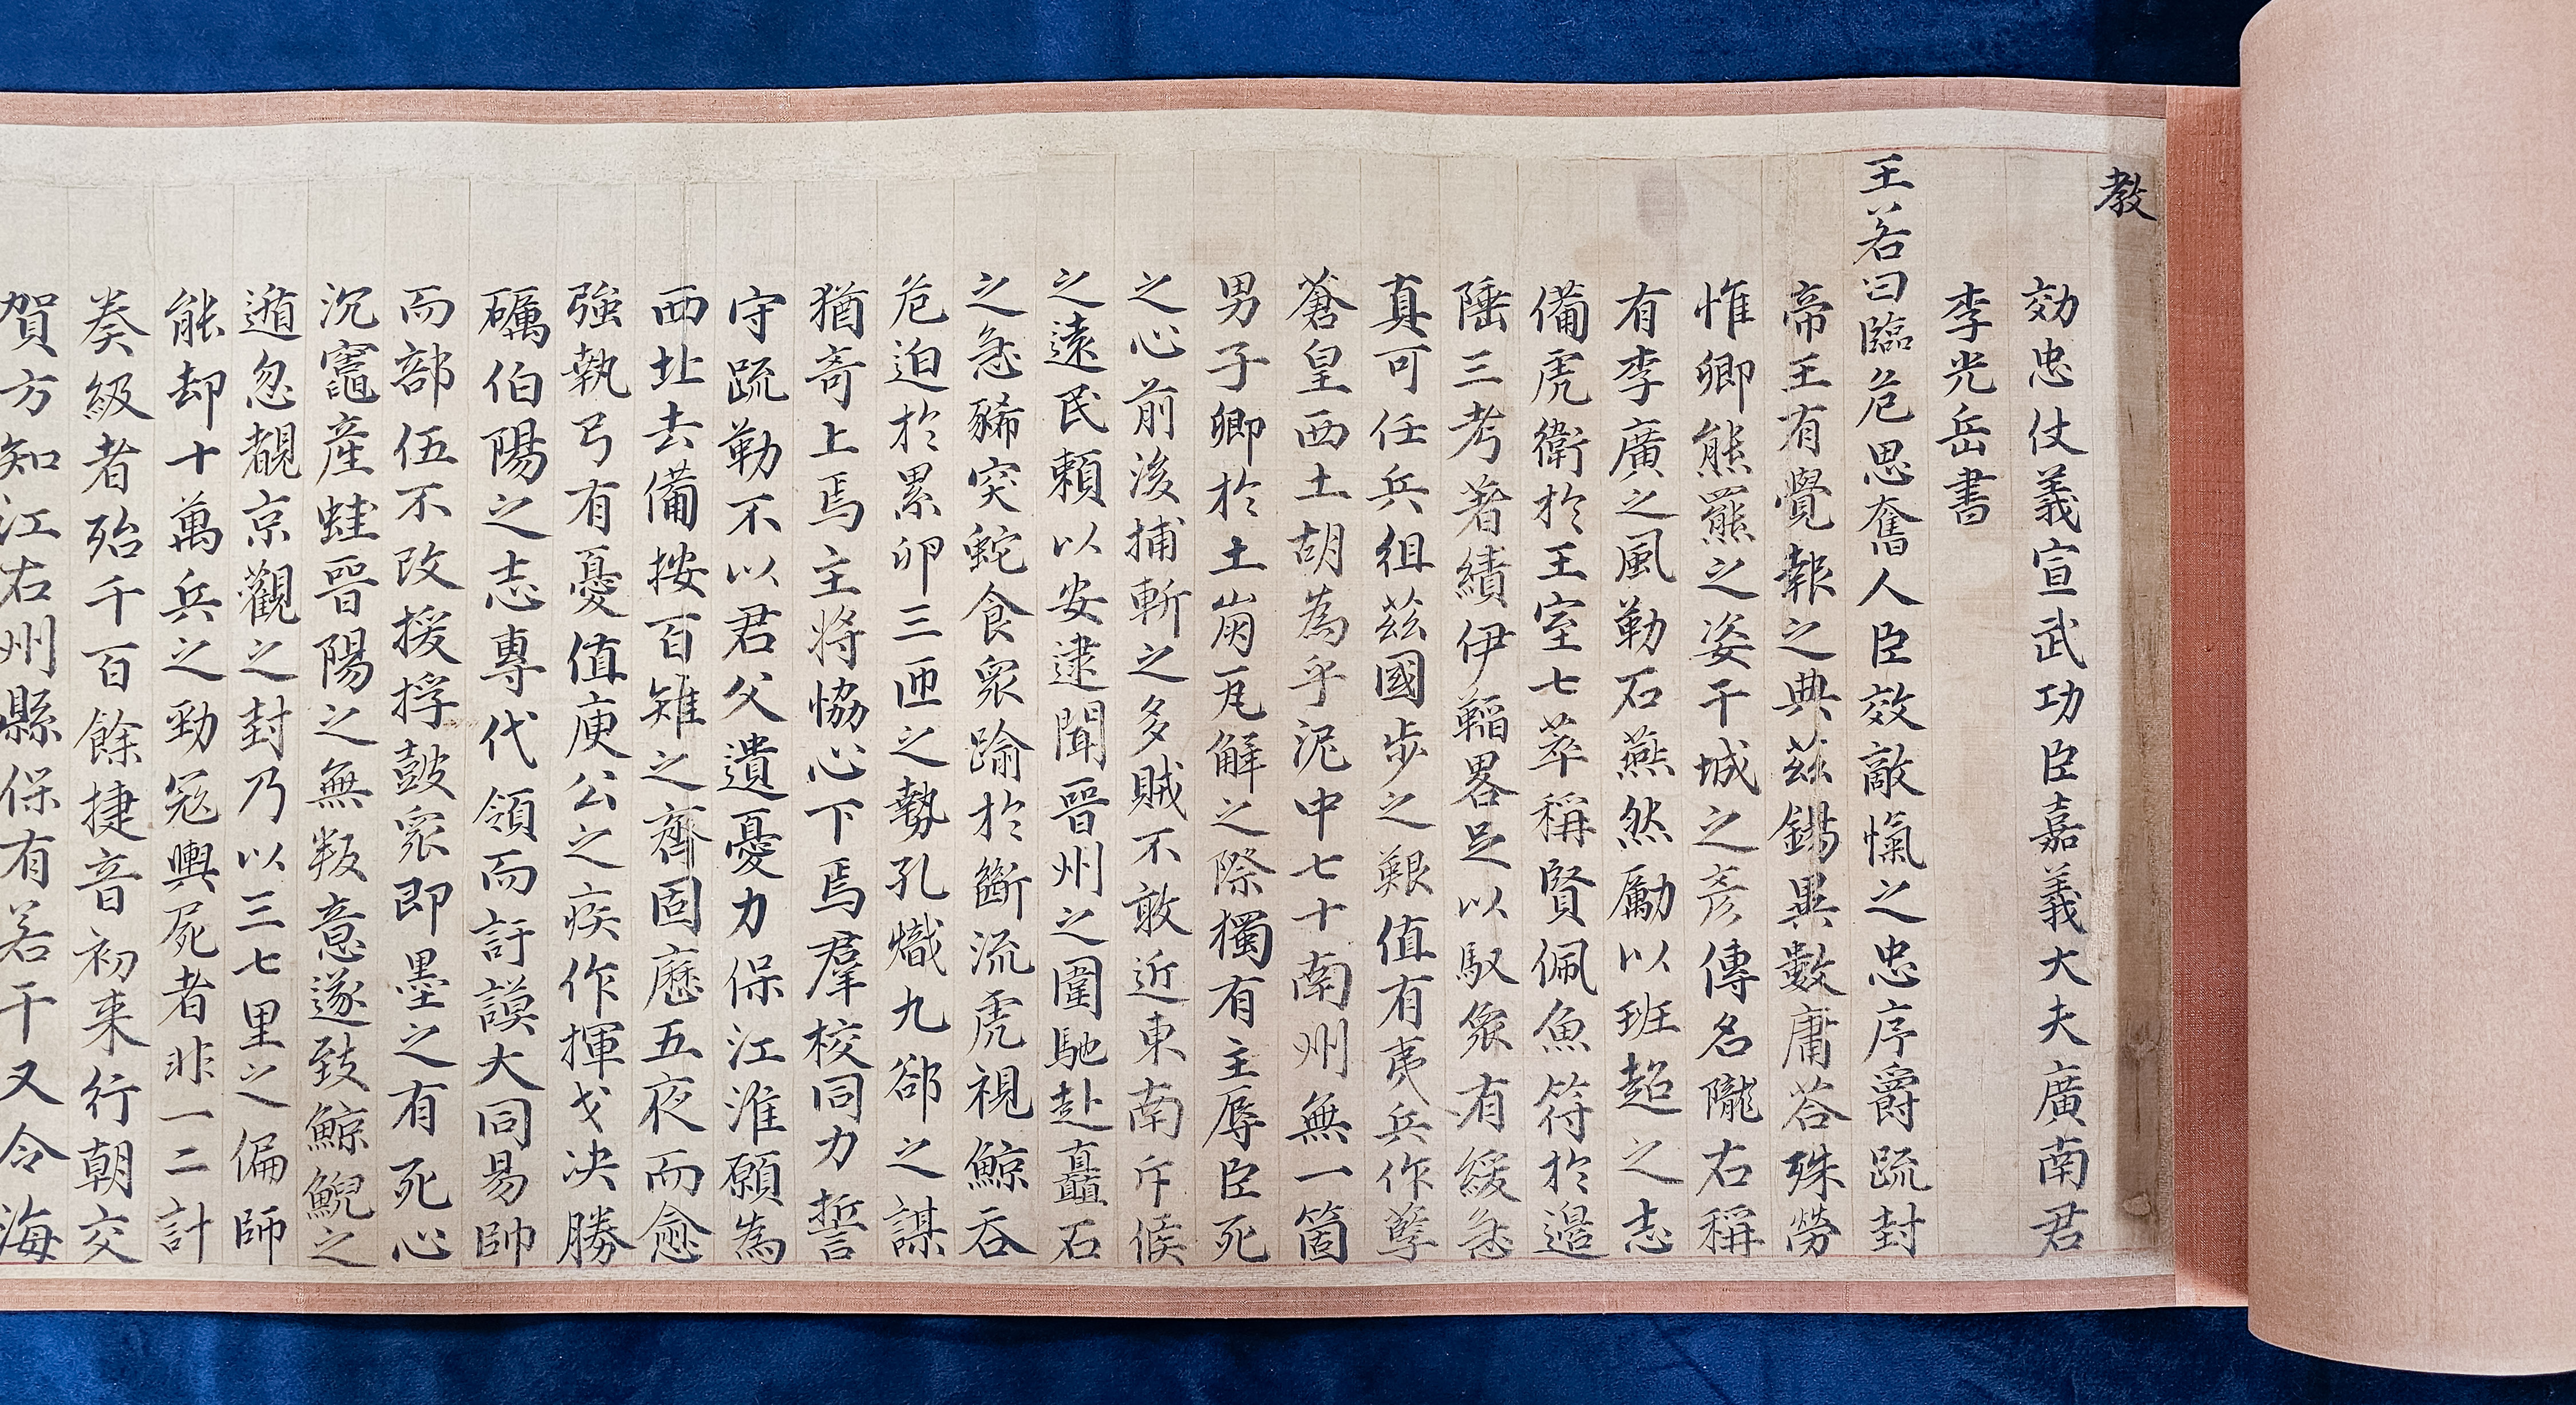 教
効忠仗義宣武功臣嘉義大夫廣南君
李光岳書
王若曰臨危思奮人臣效敵愾之忠序爵疏封
帝王有覺報之典茲錫異數庸荅殊勞
惟卿熊羆之姿干城之彥傳名隴右稱
有李廣之風勒石燕然勵以班超之志
備虎衛於王室七萃稱賢佩魚符於邊
陲三考著績伊韜畧足以馭衆有緩急
真可任兵徂茲國步之艱值有夷兵作孽
蒼皇西土胡為乎泥中七十南州無一箇
男子卿於土崩瓦解之際獨有主辱臣死
之心前後捕斬之多賊不敢近東南斥候
之遠民賴以安逮聞晉州之圍馳赴矗石
之急豨突蛇食衆踰於斷流虎視鯨吞
危迫於累卵三匝之勢孔熾九郤之謀
猶奇上焉主將恊心下焉羣校同力誓
守疏勒不以君父遺憂力保江淮願為
西北去備按百雉之齊固歷五夜而愈
強執弓有憂值庾公之疾作揮戈決勝
礪伯陽之志專代領而訏謨大同易帥
而部伍不改援捊鼓衆即墨之有死心
沉竈產蛙晉陽之無叛意遂致鯨鯢之
遁忽覩京觀之封乃以三七里之偏師
能却十萬兵之勁冦輿屍者非一二計
奏級者殆千百餘捷音初来行朝交
賀方知江右州縣保有若干又令海